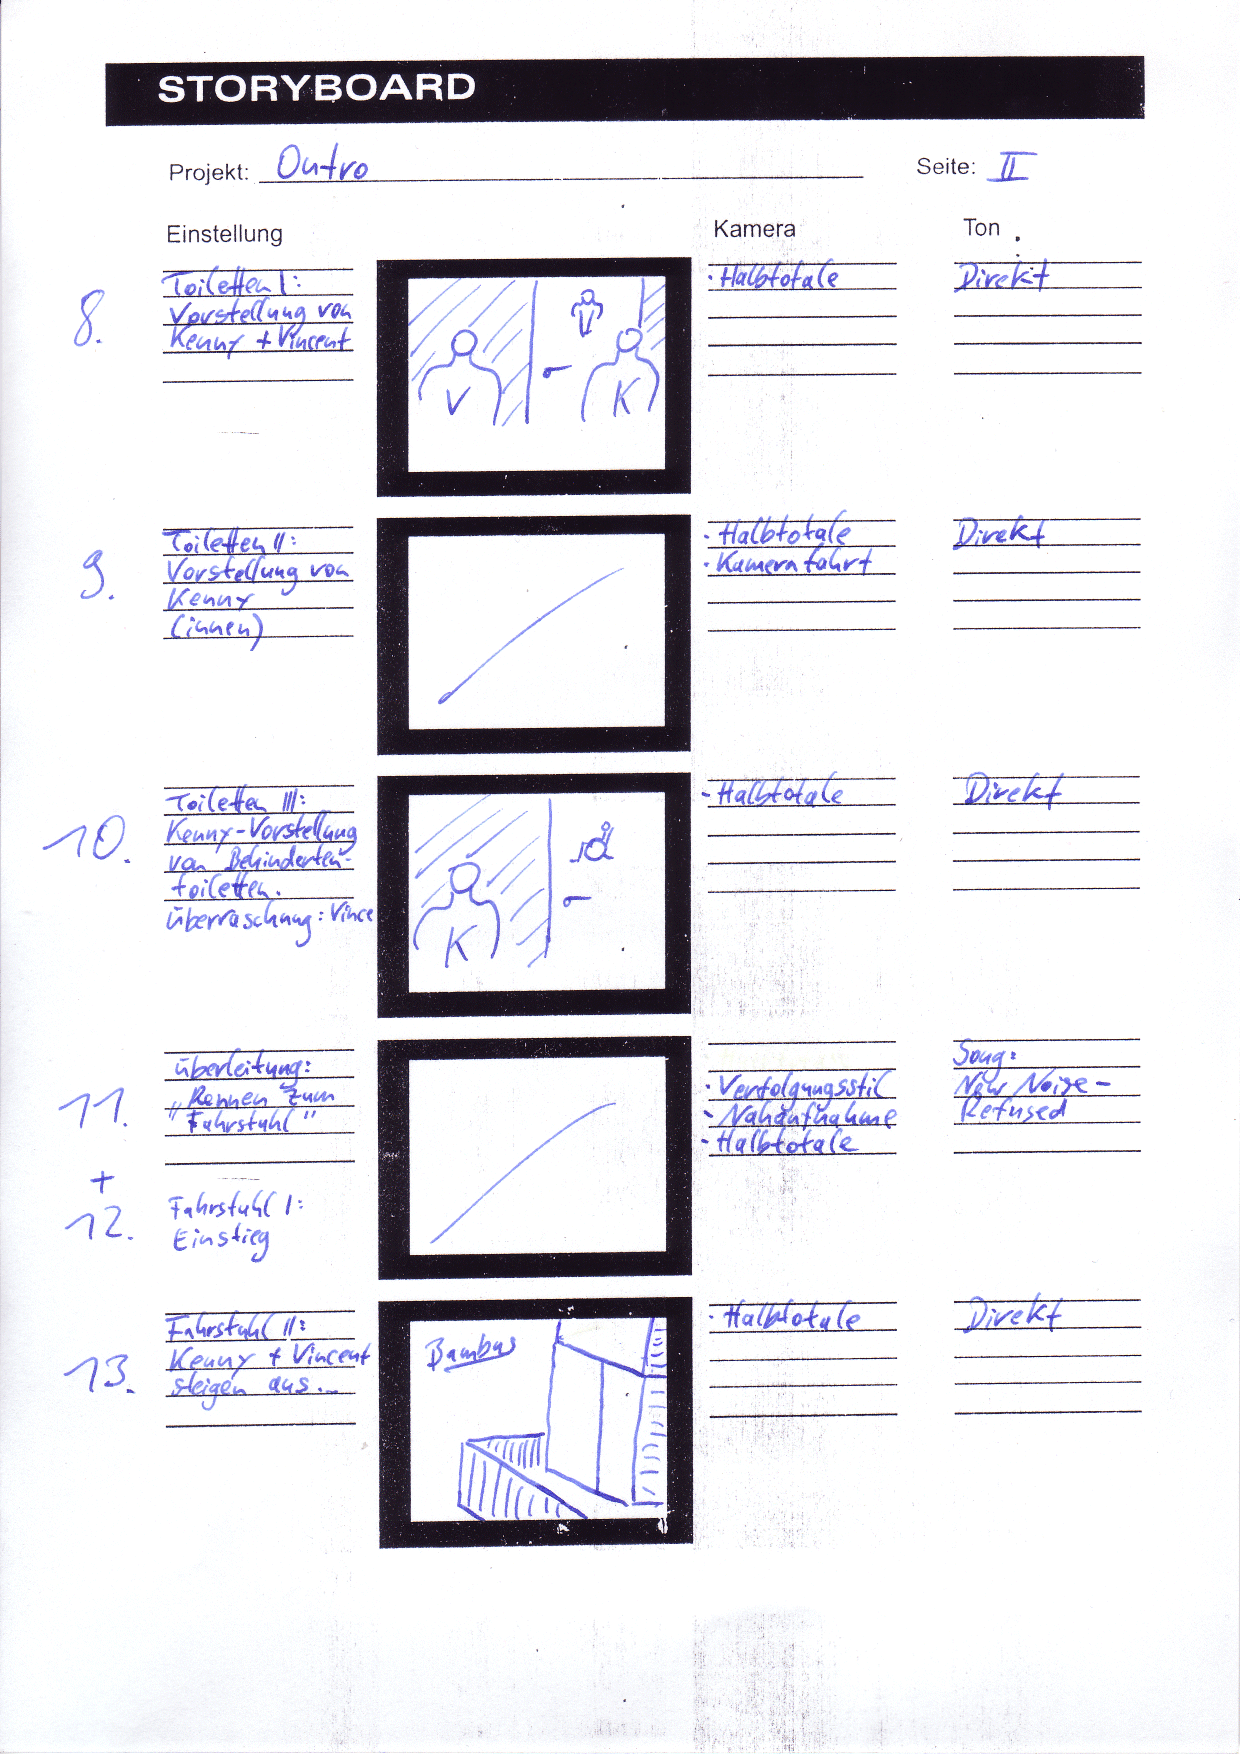 STORYBOARD
Projekt: Outro
Seite: II
Einstellung
Kamera
Ton
8.
Toiletten I:
Vorstellung von
Kenny + Vincent
V
K
· Halbtotale
Direkt
9.
Toiletten II:
Vorstellung von
Kenny
(innen)
· Halbtotale
· Kamerafahrt
Direkt
10.
Toiletten III:
Kenny-Vorstellung
von Behinderten-
toiletten.
Überraschung: Vince
K
- Halbtotale
Direkt
11.
Überleitung:
"Rennen zum
Fahrstuhl"
· Verfolgungsstil
· Nahaufnahme
· Halbtotale
Song:
New Noise -
Refused
+
12.
Fahrstuhl I:
Einstieg
13.
Fahrstuhl II:
Kenny + Vincent
steigen aus...
Bambus
· Halbtotale
Direkt